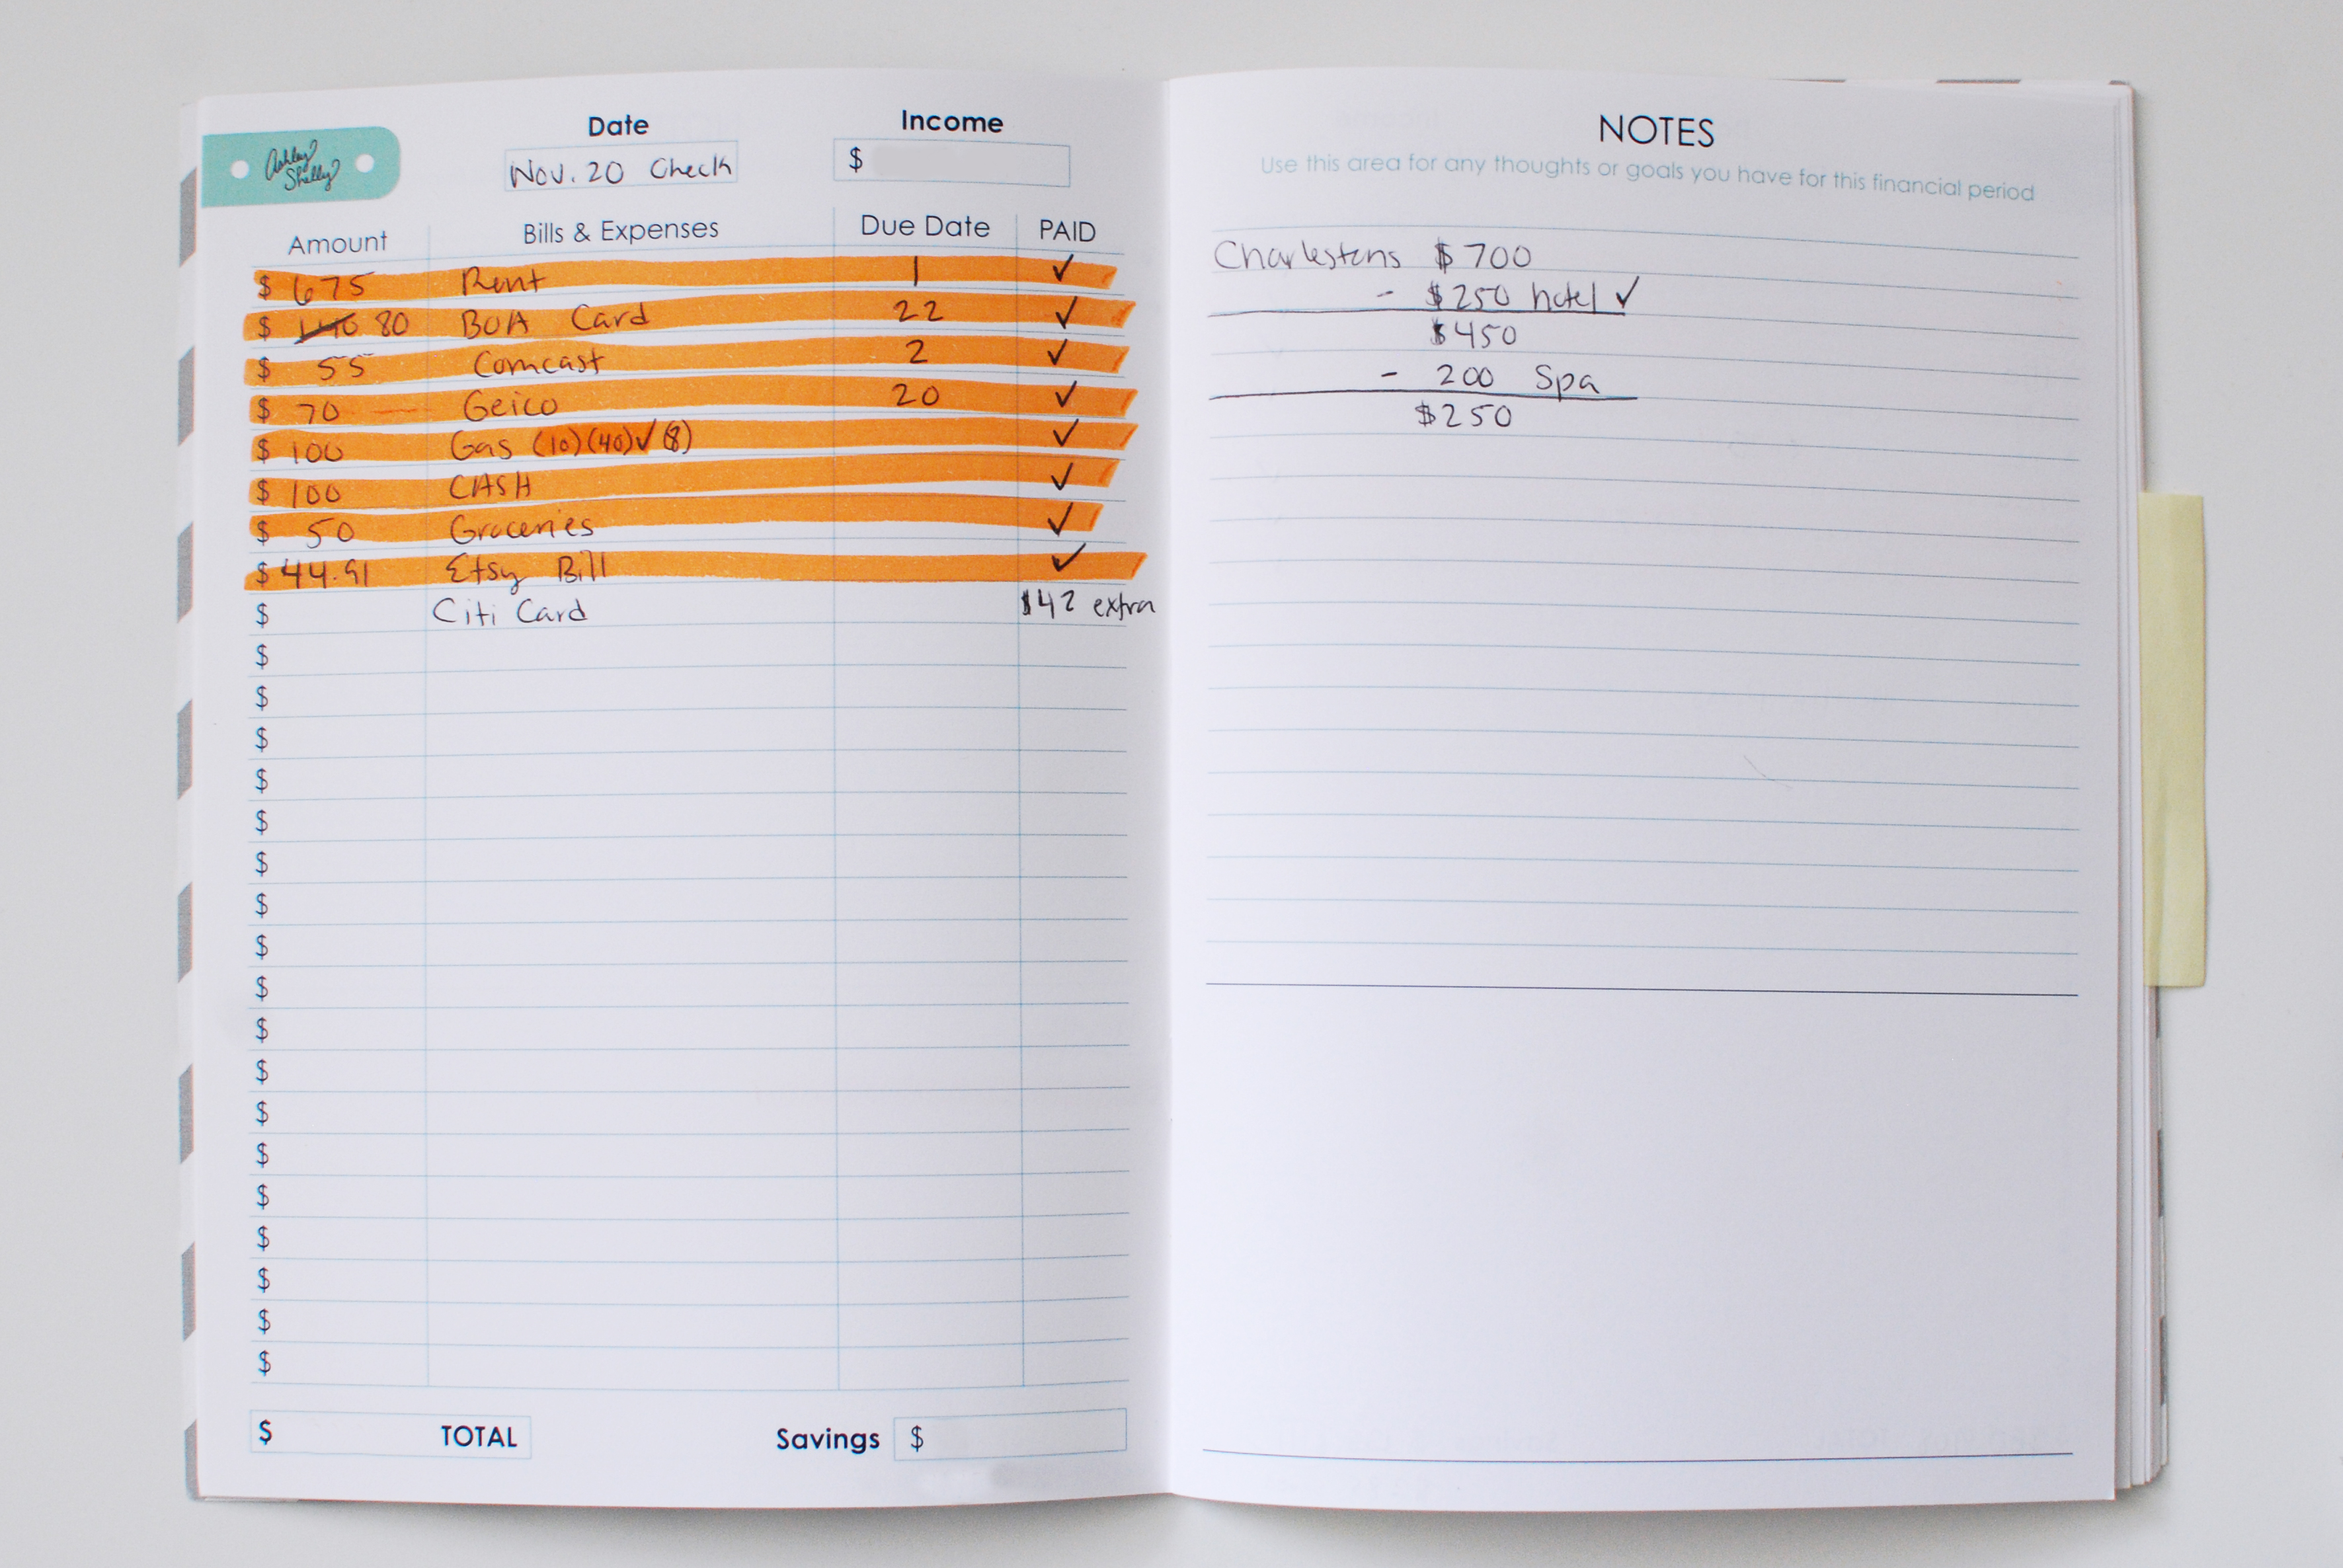 Ashley Shelly
Date
Income
Nov. 20 Check
$
Amount
Bills & Expenses
Due Date
PAID
$ 675 Rent 1 ✓
$ 140 80 BOA Card 22 ✓
$ 55 Comcast 2 ✓
$ 70 Geico 20 ✓
$ 100 Gas (10)(40)✓(8) ✓
$ 100 CASH ✓
$ 50 Groceries ✓
$ 44.91 Etsy Bill ✓
$ Citi Card $42 extra
$
$
$
$
$
$
$
$
$
$
$
$
$
$
$
$
$
$
$ TOTAL
Savings $
NOTES
Use this area for any thoughts or goals you have for this financial period
Charlestons $700
- $250 hotel ✓
$450
- 200 Spa
$250